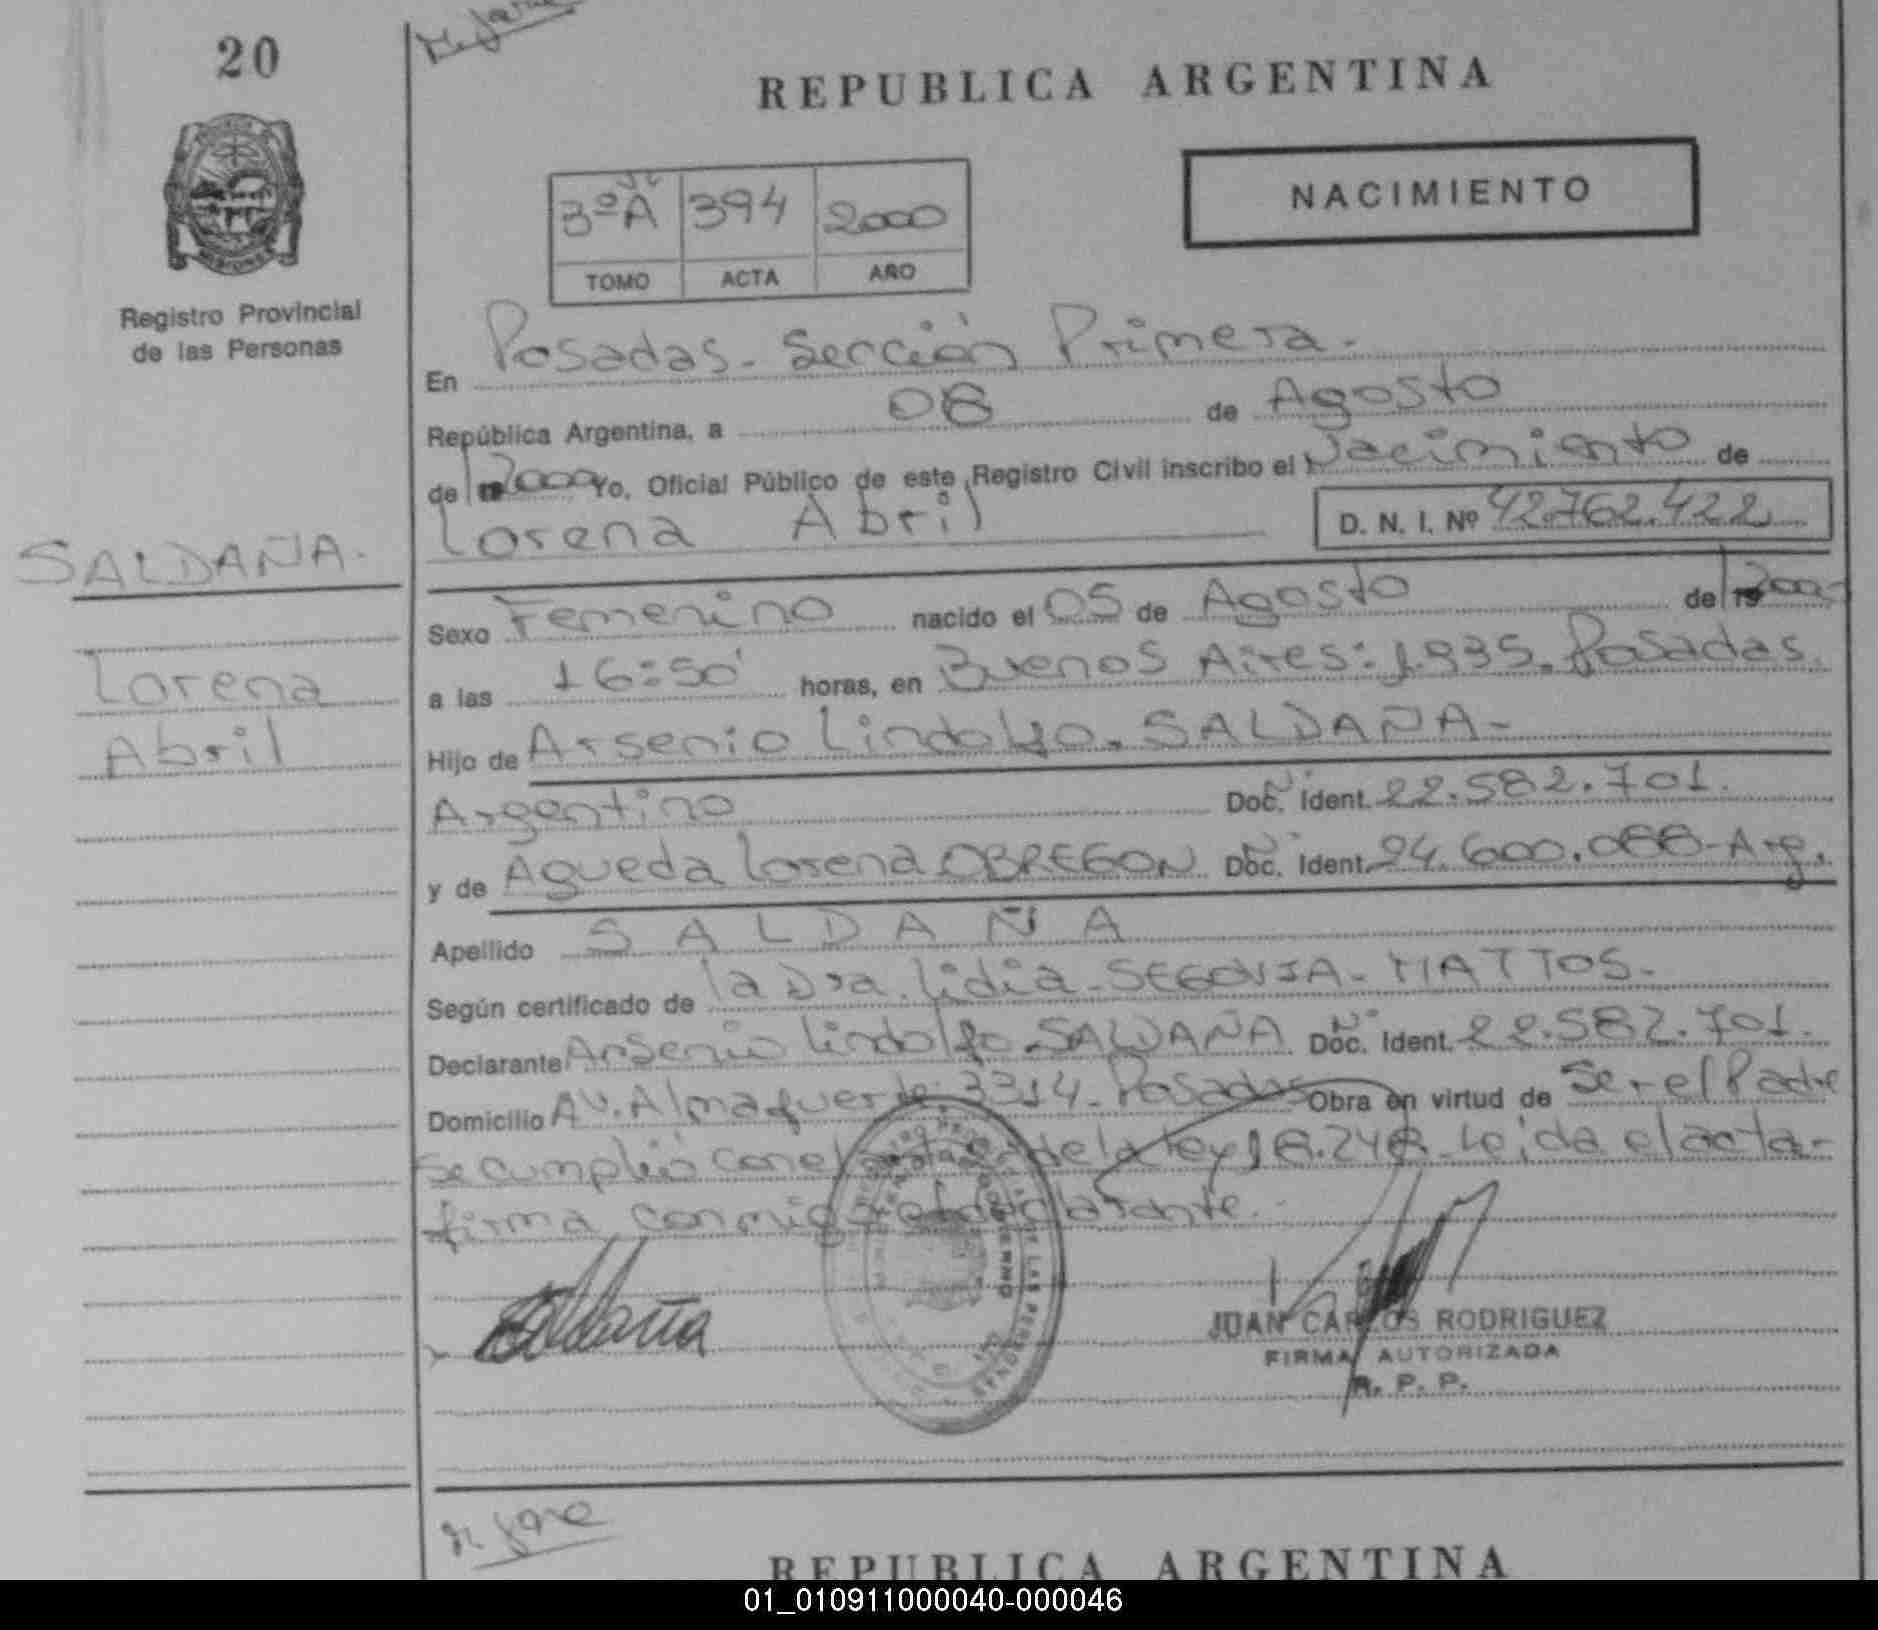 20
REPUBLICA ARGENTINA
NACIMIENTO
3ºA 394 2000
TOMO ACTA AÑO
Registro Provincial
de las Personas
En Posadas - Sección Primera -
República Argentina, a 08 de Agosto
de 2000 Yo, Oficial Público de este Registro Civil inscribo el Nacimiento de
Lorena Abril D. N. I. Nº 42.762.422
SALDAÑA.
Lorena
Abril
Sexo Femenino nacido el 05 de Agosto de 2000
a las 16:50' horas, en Buenos Aires: 1.935. Posadas.
Hijo de Arsenio Lindolfo. SALDAÑA -
Argentino Doc. Ident. 22.582.701.
y de Agueda Lorena OBREGON Doc. Ident. 24.600.088 - Arg.
Apellido SALDAÑA
Según certificado de la Dra. Lidia - SEGOVIA - MATTOS -
Declarante Arsenio Lindolfo SALDAÑA Doc. Ident. 22.582.701.
Domicilio Av. Almafuerte: 3314 - Posadas Obra en virtud de Ser el Padre
Se cumplió con el de la Ley 18.248 - Leida el acta -
firma conmigo el declarante.
Saldaña
JUAN CARLOS RODRIGUEZ
FIRMA AUTORIZADA
R. P. P.
REPUBLICA ARGENTINA
01_010911000040-000046